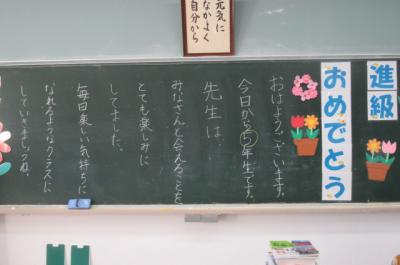 元気に
なかよく
自分から
進級
おめでとう
おはようございます。
今日から5年生です。
先生は、
みなさんと会えることを
とても楽しみに
してました。
毎日楽しい気持ちに
なれるようなクラスに
していきましょうね。